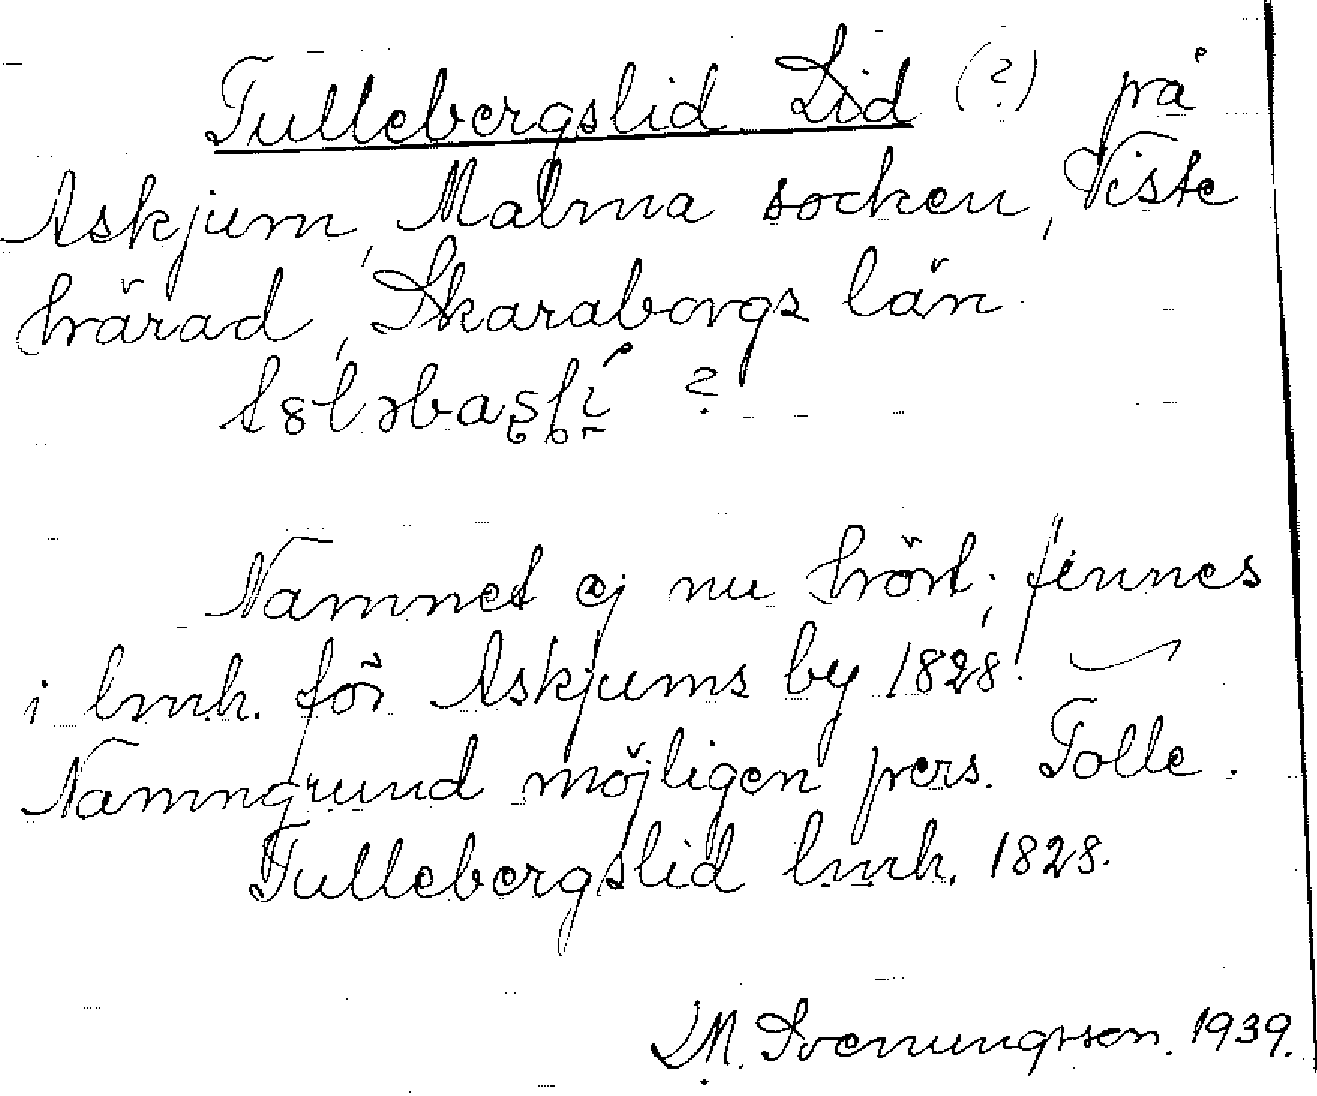 Tullebergslid Lid (?) på
Askjum, Malma socken, Viste
härad, Skaraborgs län.
?
Namnet ej nu hört; finnes
i lmh. för Askjums by 1828.
Namngrund möjligen pers. Tolle.
Tullebergslid lmh. 1828.
M. Svenungsson. 1939.